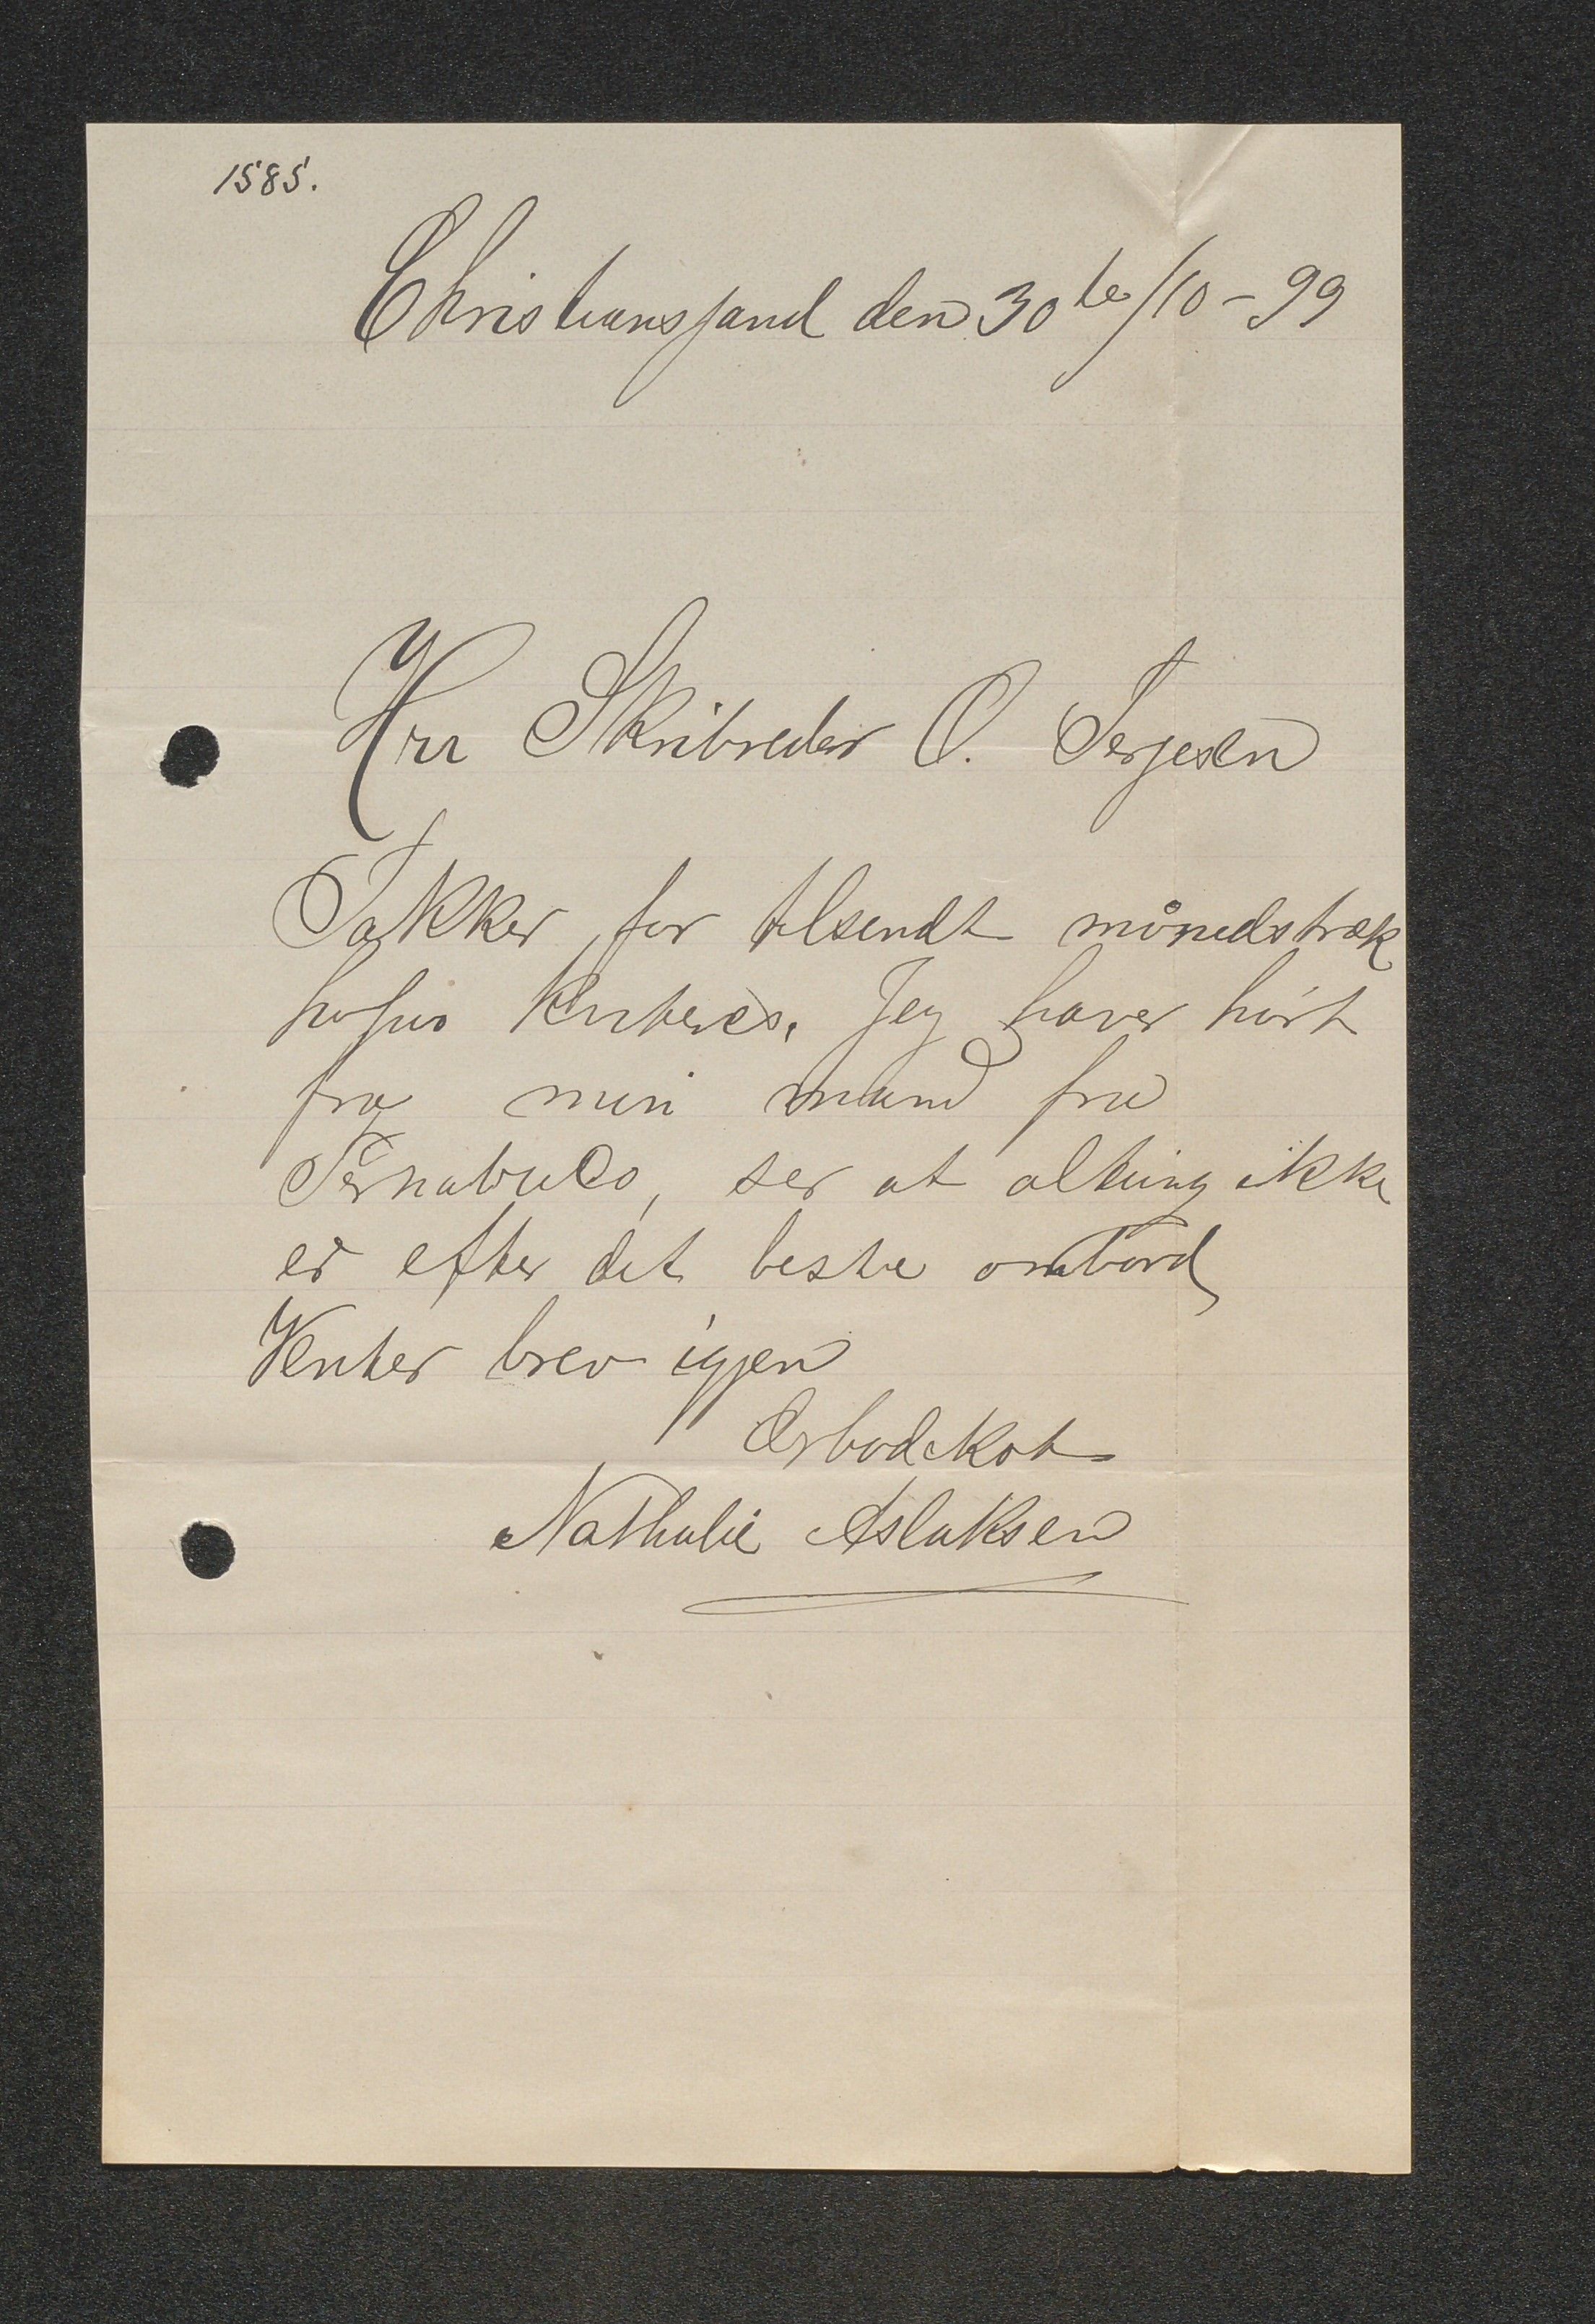 1585.
Christianssand den 30te/10-99
Hrr Skibreder O. Terjesen
Takker for tilsendt månedstræk
hvfuo kviteres. Jeg haver hørt
fra min mand fra
Pernabuco, ser at alting ikke
er efter det beste ombord
Venter brev igjen
Ærbødekst
Nathalie Aslaksen